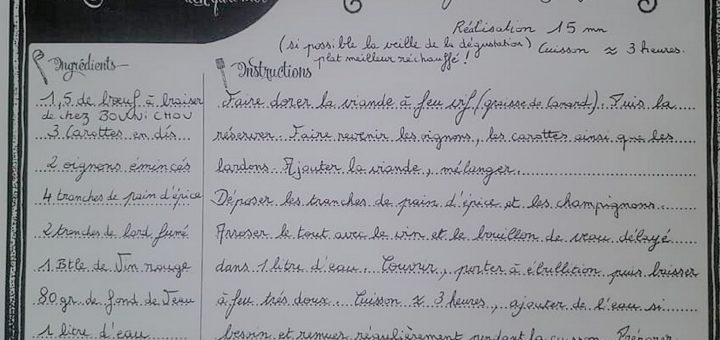 Réalisation 15 mn
(si possible la veille de la dégustation) Cuisson ≈ 3 heures.
plat meilleur réchauffé !
Ingrédients
1,5 de bœuf à braiser
de chez BOUNI CHOU
3 Carottes en dés
2 oignons émincés
4 tranches de pain d'épice
2 tranches de lard fumé
1 Btle de Vin rouge
80 gr de fond de Veau
1 litre d'eau
Instructions
Faire dorer la viande à feu vif (graisse de Canard). Puis la
réserver. Faire revenir les oignons, les carottes ainsi que les
lardons. Ajouter la viande, mélanger.
Déposer les tranches de pain d'épice et les champignons.
Arroser le tout avec le vin et le bouillon de veau délayé
dans 1 litre d'eau. Couvrir, porter à ébullition puis baisser
à feu très doux. Cuisson ≈ 3 heures, ajouter de l'eau si
besoin et remuer régulièrement pendant la cuisson. Préparer